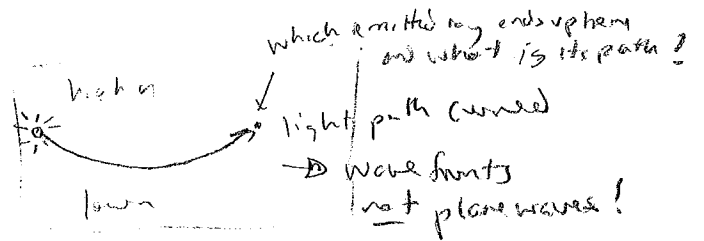 which emitted ray ends up here
and what is its path?
high n
light path curved
low n
→ wave fronts
not plane waves!